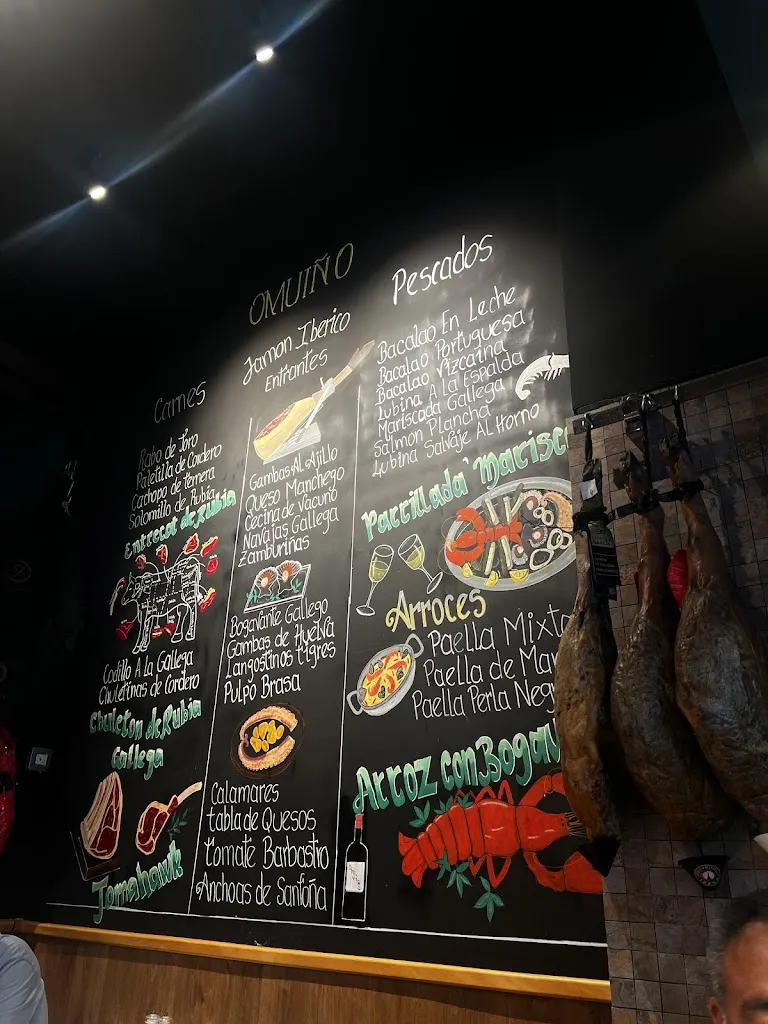 OMUIÑO
Carnes
Rabo de Toro
Paletilla de Cordero
Cachopo de Ternera
Solomillo de Rubia
Entrecot de Rubia
Codillo A la Gallega
Chuletinas de Cordero
Chuleton de Rubia
Gallega
Tomahawk
Jamon Iberico
Entrantes
Gambas Al Ajillo
Queso Manchego
Cecina de Vacuno
Navajas Gallega
Zamburiñas
Bogavante Gallego
Gambas de Huelva
Langostinos Tigres
Pulpo Brasa
Calamares
tabla de Quesos
tomate Barbastro
Anchoas de Santoña
Pescados
Bacalao En Leche
Bacalao Portuguesa
Bacalao Vizcaina
Lubina A la Espalda
Mariscada Gallega
Salmon Plancha
Lubina Salvaje AL Horno
Parrillada Marisc
Arroces
Paella Mixta
Paella de Mar
Paella Perla Neg
Arroz con Bogav